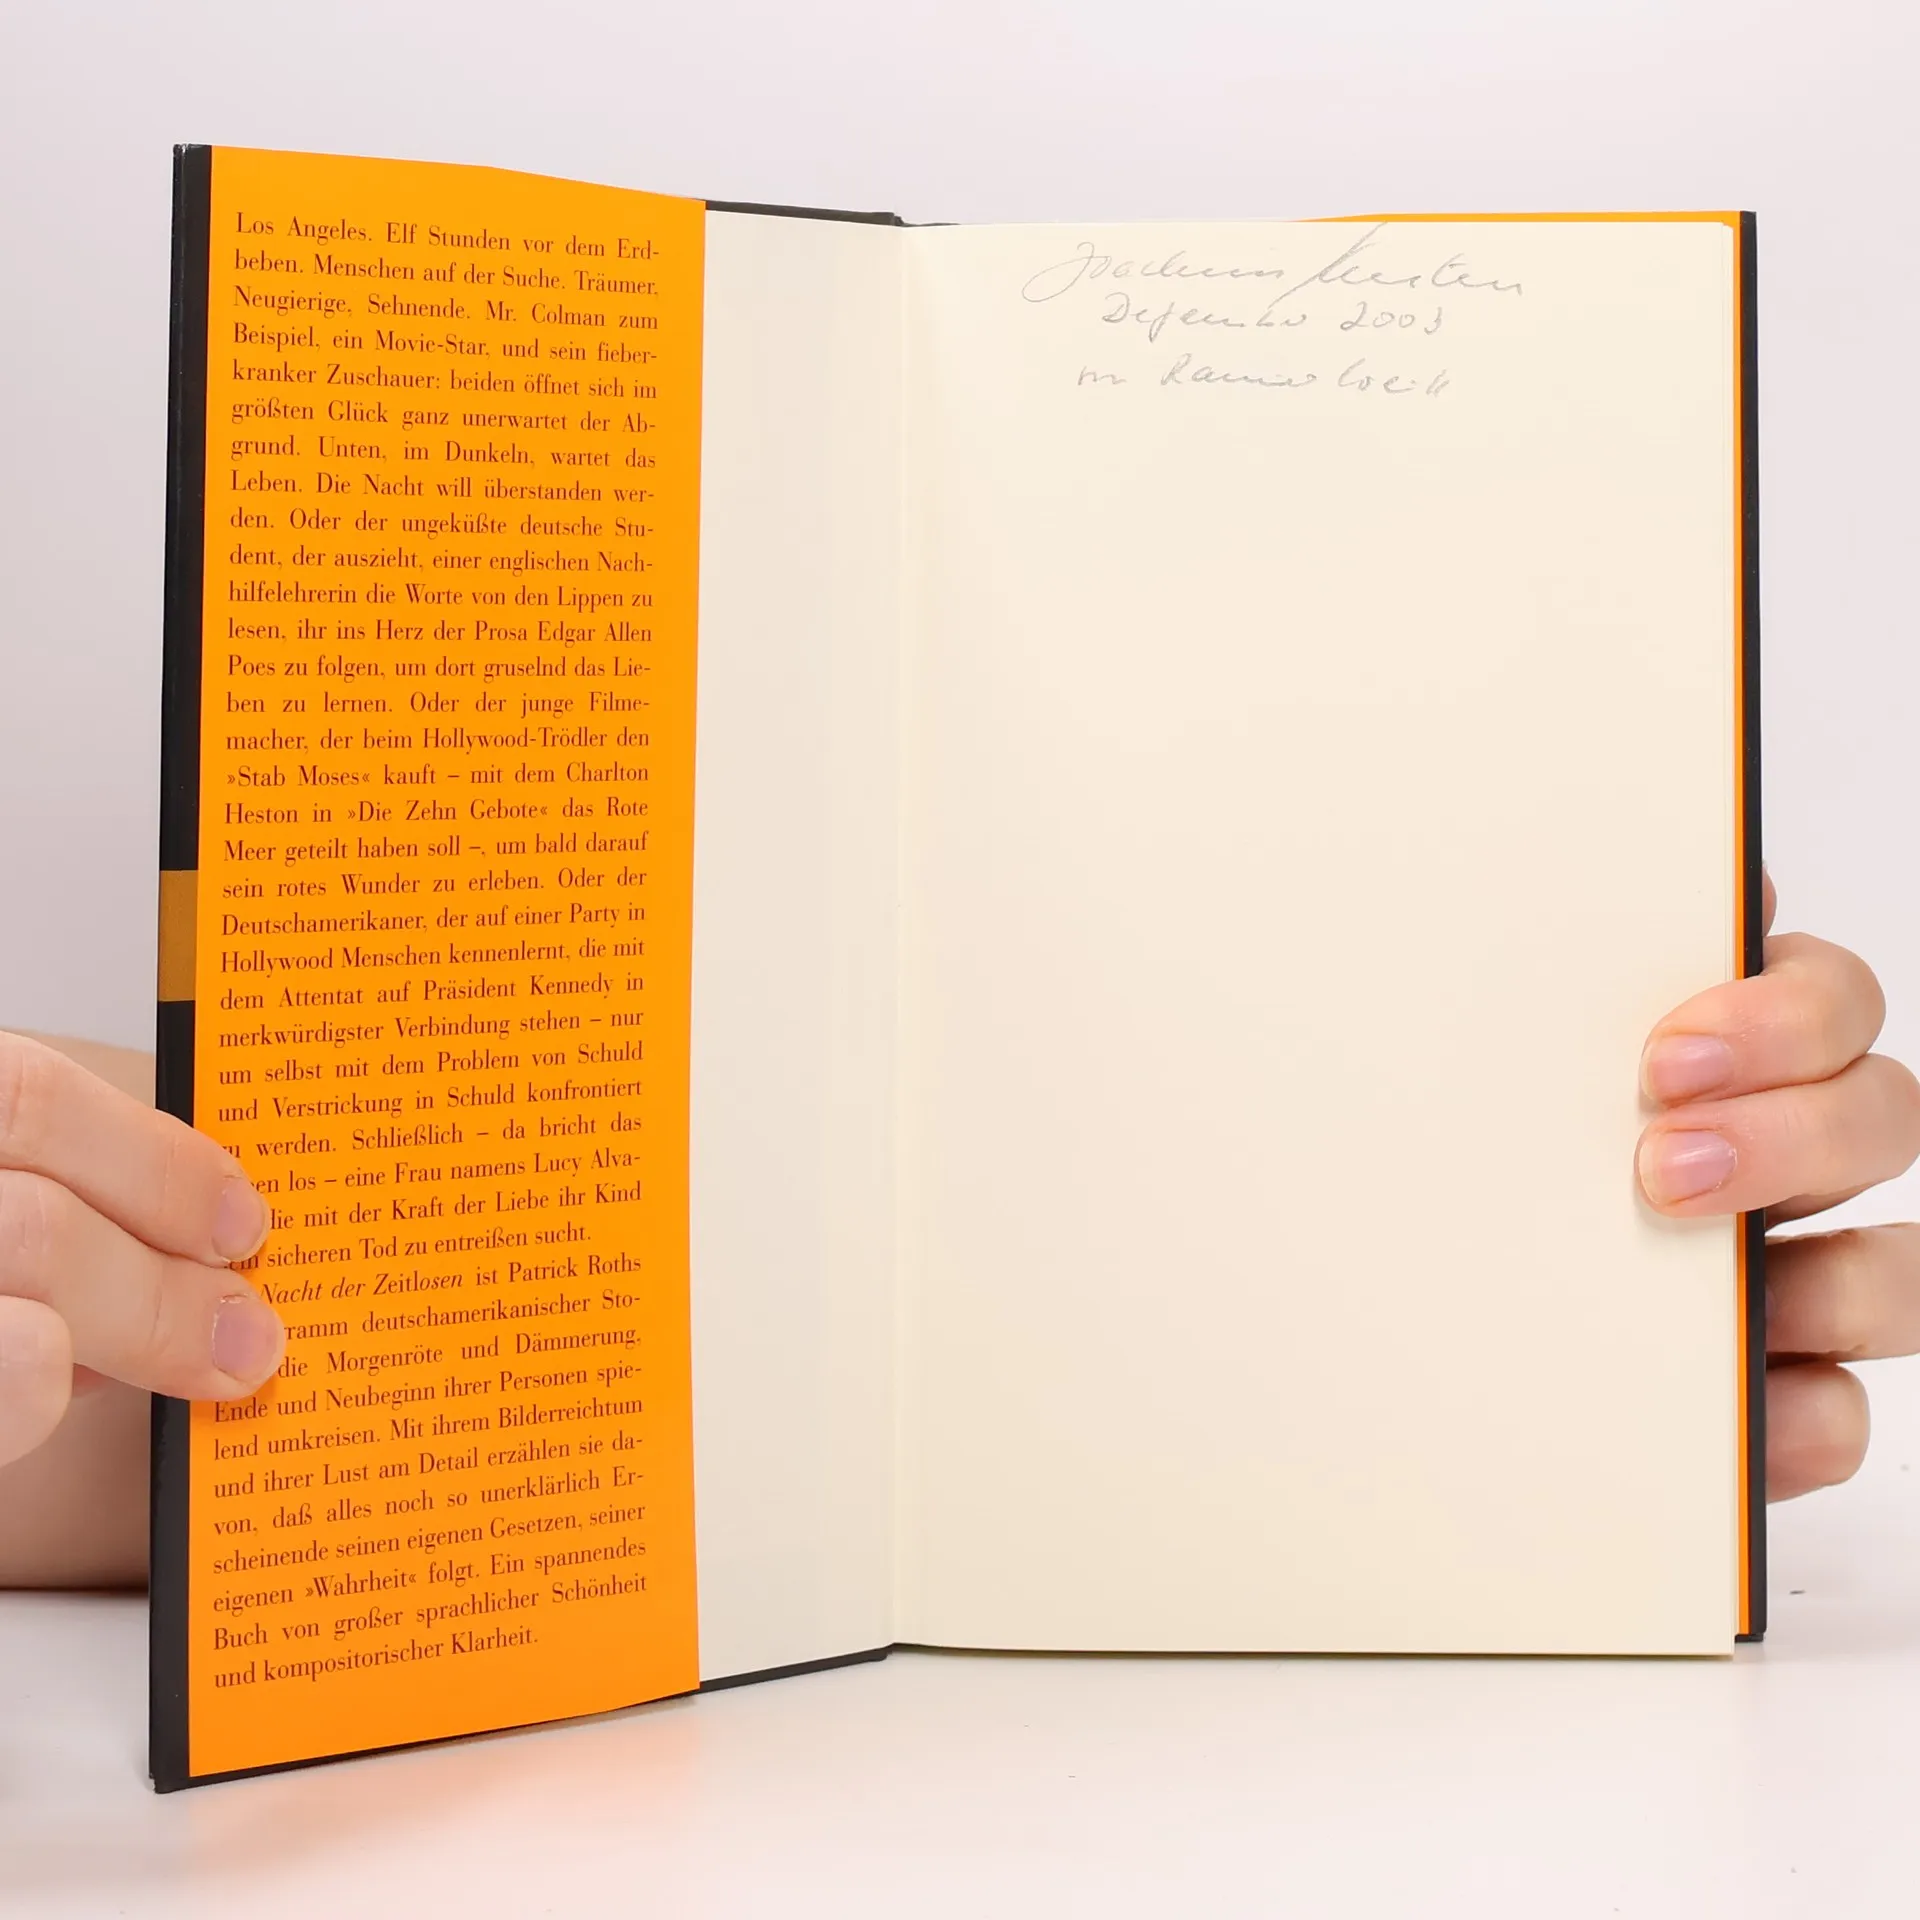 Los Angeles. Elf Stunden vor dem Erd-
beben. Menschen auf der Suche. Träumer,
Neugierige, Sehnende. Mr. Colman zum
Beispiel, ein Movie-Star, und sein fieber-
kranker Zuschauer: beiden öffnet sich im
größten Glück ganz unerwartet der Ab-
grund. Unten, im Dunkeln, wartet das
Leben. Die Nacht will überstanden wer-
den. Oder der ungeküßte deutsche Stu-
dent, der auszieht, einer englischen Nach-
hilfelehrerin die Worte von den Lippen zu
lesen, ihr ins Herz der Prosa Edgar Allen
Poes zu folgen, um dort gruselnd das Lie-
ben zu lernen. Oder der junge Filme-
macher, der beim Hollywood-Trödler den
»Stab Moses« kauft – mit dem Charlton
Heston in »Die Zehn Gebote« das Rote
Meer geteilt haben soll –, um bald darauf
sein rotes Wunder zu erleben. Oder der
Deutschamerikaner, der auf einer Party in
Hollywood Menschen kennenlernt, die mit
dem Attentat auf Präsident Kennedy in
merkwürdigster Verbindung stehen – nur
um selbst mit dem Problem von Schuld
und Verstrickung in Schuld konfrontiert
werden. Schließlich – da bricht das
los – eine Frau namens Lucy Alva-
die mit der Kraft der Liebe ihr Kind
sicheren Tod zu entreißen sucht.
Nacht der Zeitlosen ist Patrick Roths
ramm deutschamerikanischer Sto-
die Morgenröte und Dämmerung,
Ende und Neubeginn ihrer Personen spie-
lend umkreisen. Mit ihrem Bilderreichtum
und ihrer Lust am Detail erzählen sie da-
von, daß alles noch so unerklärlich Er-
scheinende seinen eigenen Gesetzen, seiner
eigenen »Wahrheit« folgt. Ein spannendes
Buch von großer sprachlicher Schönheit
und kompositorischer Klarheit.
Joachim
Dezember 2003
Rainer